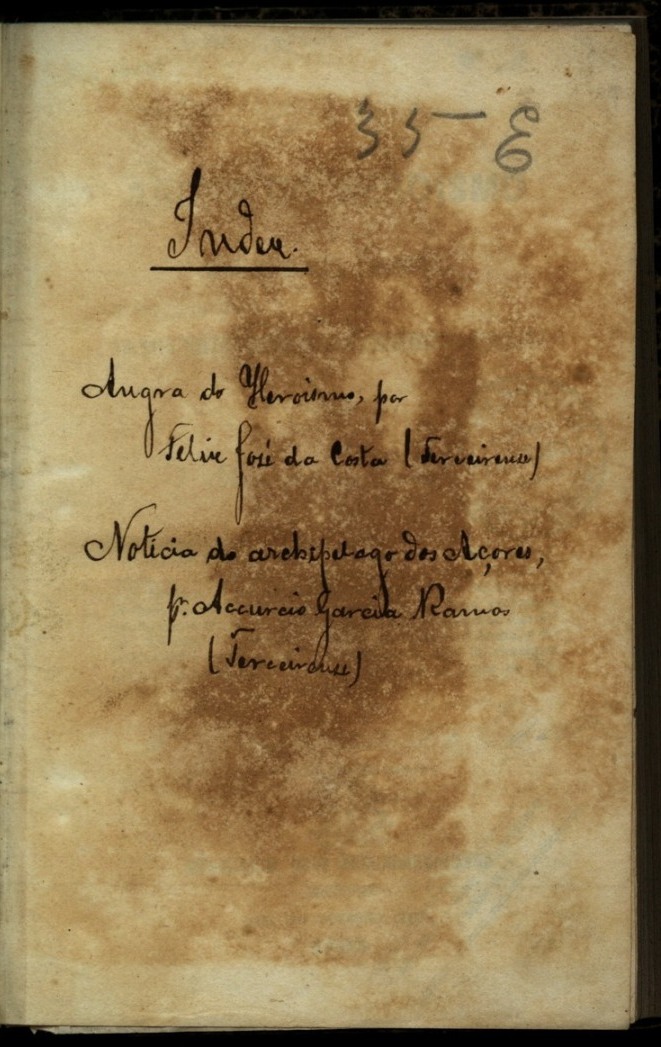 35-E
Index.
Angra do Heroismo, por
Felix José da Costa (Terceirense)
Noticia do archipelago dos Açores,
pr. Accurcio Garcia Ramos
(Terceirense)